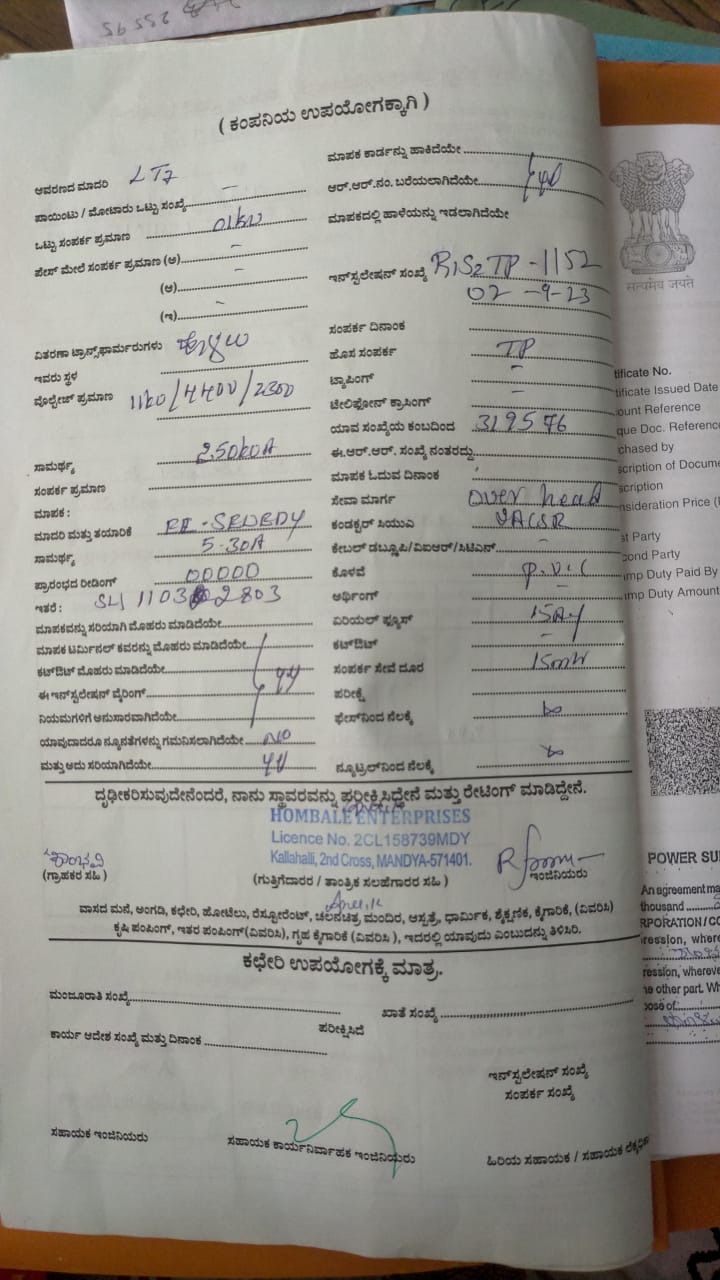 255 95
( ಕಂಪನಿಯ ಉಪಯೋಗಕ್ಕಾಗಿ )
ಆವರಣದ ಮಾದರಿ LT7
ಪಾಯಿಂಟು / ಮೋಟಾರು ಒಟ್ಟು ಸಂಖ್ಯೆ -
ಒಟ್ಟು ಸಂಪರ್ಕ ಪ್ರಮಾಣ 01kw
ಪೇಸ್ ಮೇಲೆ ಸಂಪರ್ಕ ಪ್ರಮಾಣ (ಅ) -
(ಆ) -
(ಇ) -
ವಿತರಣಾ ಟ್ರಾನ್ಸ್‌ಫಾರ್ಮರುಗಳು
ಇವರು ಸ್ಥಳ
ವೊಲ್ಟೇಜ್ ಪ್ರಮಾಣ 11kv/4400/2300
ಸಾಮರ್ಥ್ಯ 250kvA
ಸಂಪರ್ಕ ಪ್ರಮಾಣ
ಮಾಪಕ :
ಮಾದರಿ ಮತ್ತು ತಯಾರಿಕೆ
ಸಾಮರ್ಥ್ಯ 5-30A
ಪ್ರಾರಂಭದ ರೀಡಿಂಗ್ 00000
ಇತರೆ : 
ಮಾಪಕವನ್ನು ಸರಿಯಾಗಿ ಮೊಹರು ಮಾಡಿದೆಯೇ
ಮಾಪಕ ಟರ್ಮಿನಲ್ ಕವರನ್ನು ಮೊಹರು ಮಾಡಿದೆಯೇ
ಕಟ್‌ಔಟ್ ಮೊಹರು ಮಾಡಿದೆಯೇ
ಈ ಇನ್‌ಸ್ಟಲೇಷನ್ ವೈರಿಂಗ್
ನಿಯಮಗಳಿಗೆ ಅನುಸಾರವಾಗಿದೆಯೇ
ಯಾವುದಾದರೂ ನ್ಯೂನತೆಗಳನ್ನು ಗಮನಿಸಲಾಗಿದೆಯೇ NO
ಮತ್ತು ಅದು ಸರಿಯಾಗಿದೆಯೇ
ಮಾಪಕ ಕಾರ್ಡನ್ನು ಹಾಕಿದೆಯೇ
ಆರ್.ಆರ್.ನಂ. ಬರೆಯಲಾಗಿದೆಯೇ
ಮಾಪಕದಲ್ಲಿ ಹಾಳೆಯನ್ನು ಇಡಲಾಗಿದೆಯೇ
ಇನ್‌ಸ್ಟಲೇಷನ್ ಸಂಖ್ಯೆ R1S2TP-1152
02-9-23
ಸಂಪರ್ಕ ದಿನಾಂಕ
ಹೊಸ ಸಂಪರ್ಕ TP
ಟ್ಯಾಪಿಂಗ್ -
ಟೆಲಿಫೋನ್ ಕ್ರಾಸಿಂಗ್ -
ಯಾವ ಸಂಖ್ಯೆಯ ಕಂಬದಿಂದ 319576
ಈ.ಆರ್.ಆರ್. ಸಂಖ್ಯೆ ನಂತರದ್ದು
ಮಾಪಕ ಓದುವ ದಿನಾಂಕ
ಸೇವಾ ಮಾರ್ಗ over head
ಕಂಡಕ್ಟರ್ ಸಿಯುಎ
ಕೇಬಲ್ ಡಬ್ಲ್ಯೂಪಿ/ವಿಐಆರ್/ಸಿಟಿಎಸ್ -
ಕೊಳವೆ P.V.C
ಅರ್ಥಿಂಗ್ -
ಏರಿಯಲ್ ಫ್ಯೂಸ್
ಕಟ್‌ಔಟ್ -
ಸಂಪರ್ಕ ಸೇವೆ ದೂರ
ಪರೀಕ್ಷೆ
ಫೇಸ್‌ನಿಂದ ನೆಲಕ್ಕೆ
ನ್ಯೂಟ್ರಲ್‌ನಿಂದ ನೆಲಕ್ಕೆ
ದೃಢೀಕರಿಸುವುದೇನೆಂದರೆ, ನಾನು ಸ್ಥಾವರವನ್ನು ಪರೀಕ್ಷಿಸಿದ್ದೇನೆ ಮತ್ತು ರೇಟಿಂಗ್ ಮಾಡಿದ್ದೇನೆ.
HOMBALE ENTERPRISES
Licence No. 2CL158739MDY
Kallahalli, 2nd Cross, MANDYA-571401.
(ಗ್ರಾಹಕರ ಸಹಿ )
(ಗುತ್ತಿಗೆದಾರರ / ತಾಂತ್ರಿಕ ಸಲಹೆಗಾರರ ಸಹಿ )
ಇಂಜಿನಿಯರು
ವಾಸದ ಮನೆ, ಅಂಗಡಿ, ಕಛೇರಿ, ಹೋಟೆಲು, ರೆಸ್ಟೋರೆಂಟ್, ಚಲನಚಿತ್ರ ಮಂದಿರ, ಆಸ್ಪತ್ರೆ, ಧಾರ್ಮಿಕ, ಶೈಕ್ಷಣಿಕ, ಕೈಗಾರಿಕೆ, (ವಿವರಿಸಿ)
ಕೃಷಿ ಪಂಪಿಂಗ್, ಇತರ ಪಂಪಿಂಗ್(ವಿವರಿಸಿ), ಗೃಹ ಕೈಗಾರಿಕೆ (ವಿವರಿಸಿ ), ಇದರಲ್ಲಿ ಯಾವುದು ಎಂಬುದನ್ನು ತಿಳಿಸಿರಿ.
ಕಛೇರಿ ಉಪಯೋಗಕ್ಕೆ ಮಾತ್ರ.
ಮಂಜೂರಾತಿ ಸಂಖ್ಯೆ
ಖಾತೆ ಸಂಖ್ಯೆ
ಪರೀಕ್ಷಿಸಿದೆ
ಕಾರ್ಯ ಆದೇಶ ಸಂಖ್ಯೆ ಮತ್ತು ದಿನಾಂಕ
ಇನ್‌ಸ್ಟಲೇಷನ್ ಸಂಖ್ಯೆ
ಸಂಪರ್ಕ ಸಂಖ್ಯೆ
ಸಹಾಯಕ ಇಂಜಿನಿಯರು
ಸಹಾಯಕ ಕಾರ್ಯನಿರ್ವಾಹಕ ಇಂಜಿನಿಯರು
ಹಿರಿಯ ಸಹಾಯಕ / ಸಹಾಯಕ
सत्यमेव जयते
tificate No.
tificate Issued Date
ount Reference
que Doc. Reference
chased by
scription of Docume
scription
nsideration Price (
st Party
cond Party
mp Duty Paid By
mp Duty Amount
POWER SU
An agreement ma
thousand
RPORATION / CO
ression, where
ression, whereve
e other part. Wh
ose of: